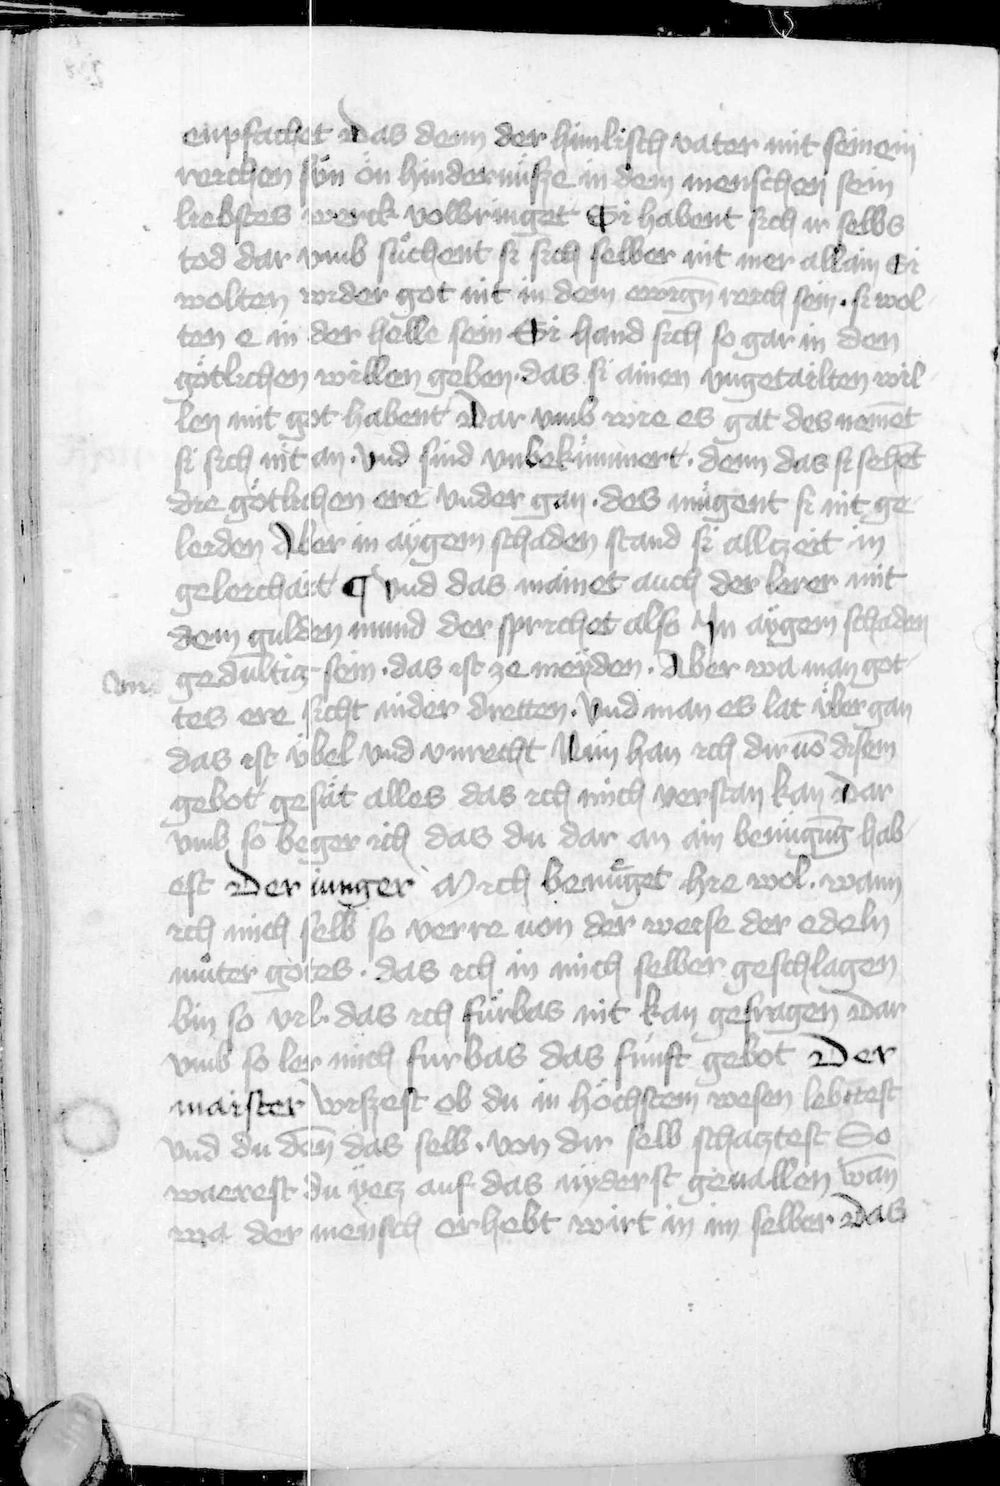 enpfachet Das denn der himlisch vater mit seinem
reichen sün ön hindernüsze in dem menschen sein
liebstes werck volbringet Si habent sich ir selbs
tod dar vmb süchent si sich selber nit mer allain Si
wolten wider got nit in dem ewigñ reich sein · si wol
ten e in der helle sein Si hand sich so gar in den
götlichen willen geben · das si ainen vngetailten wil
len mit got habent Dar vmb wie es gat des neme᷑t
si sich nit an · Vnd sind vnbekümmert · denn das si sehe᷑t
die götlichen ere vnder gan · des mügent si nit ge
leiden Aber in aÿgem schaden stand si alltzeit in
geleichait ¶ Vnd das mainet auch der lerer mit
dem gulden mund der sprichet also In aÿgem schaden
gedultig sein · das ist ze meÿden · Aber wa man got
tes ere sicht nider dretten · Vnd man es lat über gan
das ist übel vnd vnrecht Nun han ich dir uō disem
gebot gesait alles das ich mich verstan kan Dar
vmb so beger ich das du dar an ain benügūg hab
est Der iunger Mich benüget hie wol · wann
ich mich selb so verre uon der weise der edeln
müter gotes · das ich in mich selber geschlagen
bin so vil · das ich fürbas nit kan gefragen Dar
vmb so ler mich fürbas das fünft gebot Der
maister Wiszest ob du in höchstem wesen lebttest
vnd du dañ das selb · von dir selb schatztest So
waerest du ÿetz auf das nÿderst geuallen wañ
wa der mensch erhebt wirt in im selber Das